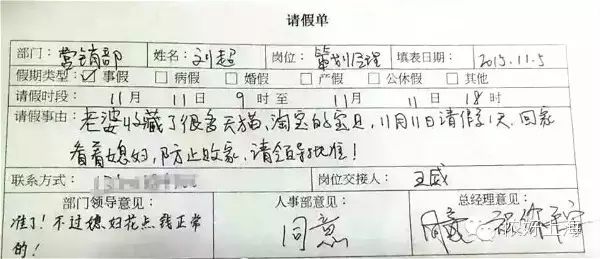 请假单
部门: 营销部 姓名: 刘超 岗位: 策划经理 填表日期: 2015.11.5
假期类型: ☑ 事假 □ 病假 □ 婚假 □ 产假 □ 公休假 □ 其他
请假时段: 11 月 11 日 9 时 至 11 月 11 日 18 时
请假事由: 老婆收藏了很多天猫,淘宝的宝贝,11月11日请假1天,回家
看着媳妇,防止败家,请领导批准!
联系方式: 岗位交接人: 王威
部门领导意见: 人事部意见: 总经理意见:
准了!不过媳妇花点钱正常 同意 同意
的!